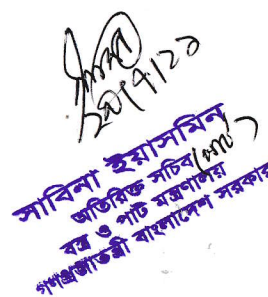 সাবিনা ইয়াসমিন
অতিরিক্ত সচিব (পাট)
বস্ত্র ও পাট মন্ত্রণালয়
গণপ্রজাতন্ত্রী বাংলাদেশ সরকার